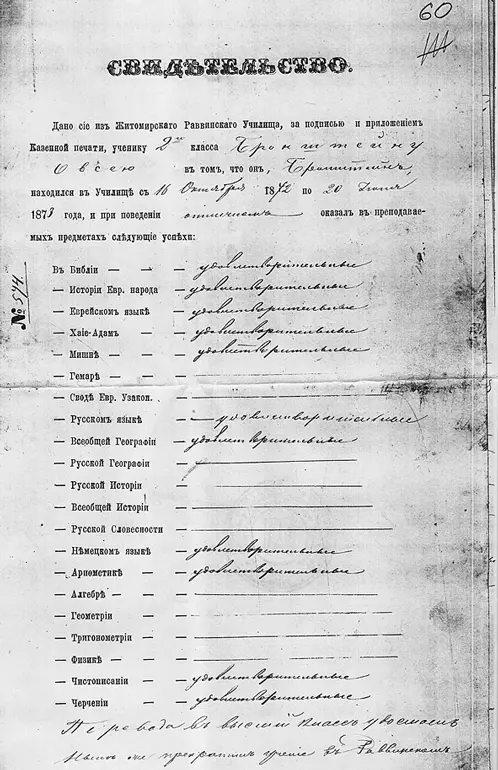 60
СВИДѢТЕЛЬСТВО.
Дано сіе изъ Житомирскаго Раввинскаго Училища, за подписью и приложеніемъ
Казенной печати, ученику 2го класса Бронштейну
Овсею въ томъ, что онъ, Бронштейнъ,
находился въ Училищѣ съ 16 Октября 1872 по 20 Іюня
1873 года, и при поведеніи отличномъ оказалъ въ преподавае-
мыхъ предметахъ слѣдующіе успѣхи:
Въ Библіи — удовлетворительные
— Исторіи Евр. народа — удовлетворительные
— Еврейскомъ языкѣ — удовлетворительные
— Хаіе-Адамъ — удовлетворительные
— Мишнѣ — удовлетворительные
— Гемарѣ —
— Сводѣ Евр. Узакон. —
— Русскомъ языкѣ — удовлетворительные
— Всеобщей Географіи — удовлетворительные
— Русской Географіи —
— Русской Исторіи —
— Всеобщей Исторіи —
— Русской Словесности —
— Нѣмецкомъ языкѣ — удовлетворительные
— Ариѳметикѣ — удовлетворительные
— Алгебрѣ —
— Геометріи —
— Тригонометріи —
— Физикѣ —
— Чистописаніи — удовлетворительные
— Черченіи — удовлетворительные
Перевода въ высшій классъ удостоенъ
нынѣ же прекратилъ ученіе въ Раввинскомъ
№ 514.